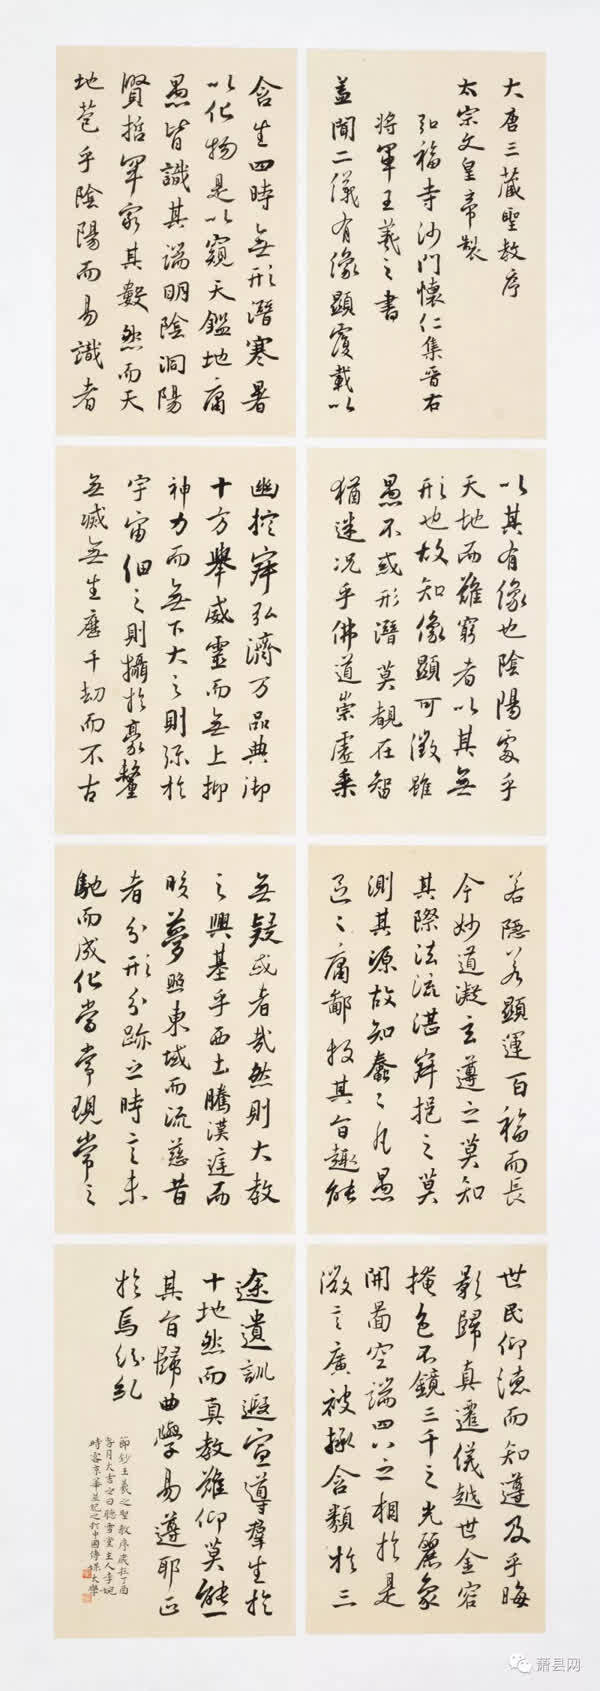 大唐三藏聖教序
太宗文皇帝製
弘福寺沙門懷仁集晉右
將軍王羲之書
蓋聞二儀有像顯覆載以
含生四時無形潛寒暑
以化物是以窺天鑑地庸
愚皆識其端明陰洞陽
賢哲罕窮其數然而天
地苞乎陰陽而易識者
以其有像也陰陽處乎
天地而難窮者以其無
形也故知像顯可徵雖
愚不惑形潛莫覩在智
猶迷況乎佛道崇虛乘
幽控寂弘濟万品典御
十方舉威靈而無上抑
神力而無下大之則彌於
宇宙細之則攝於豪釐
無滅無生歷千劫而不古
若隱若顯運百福而長
今妙道凝玄遵之莫知
其際法流湛寂挹之莫
測其源故知蠢〻凡愚
區〻庸鄙投其旨趣能
無疑或者哉然則大教
之興基乎西土騰漢庭而
皎夢照東域而流慈昔
者分形分跡之時言未
馳而成化當常現常之
世民仰德而知遵及乎晦
影歸真遷儀越世金容
掩色不鏡三千之光麗象
開圖空端四八之相於是
微言廣被拯含類於三
途遺訓遐宣導群生於
十地然而真教難仰莫能一
其旨歸曲學易遵耶正
於焉紛糾
節鈔王羲之聖教序歲在丁酉
月大吉之日聽雪堂主人李婉
時客京華並記之於中國傳媒大學
萧县网